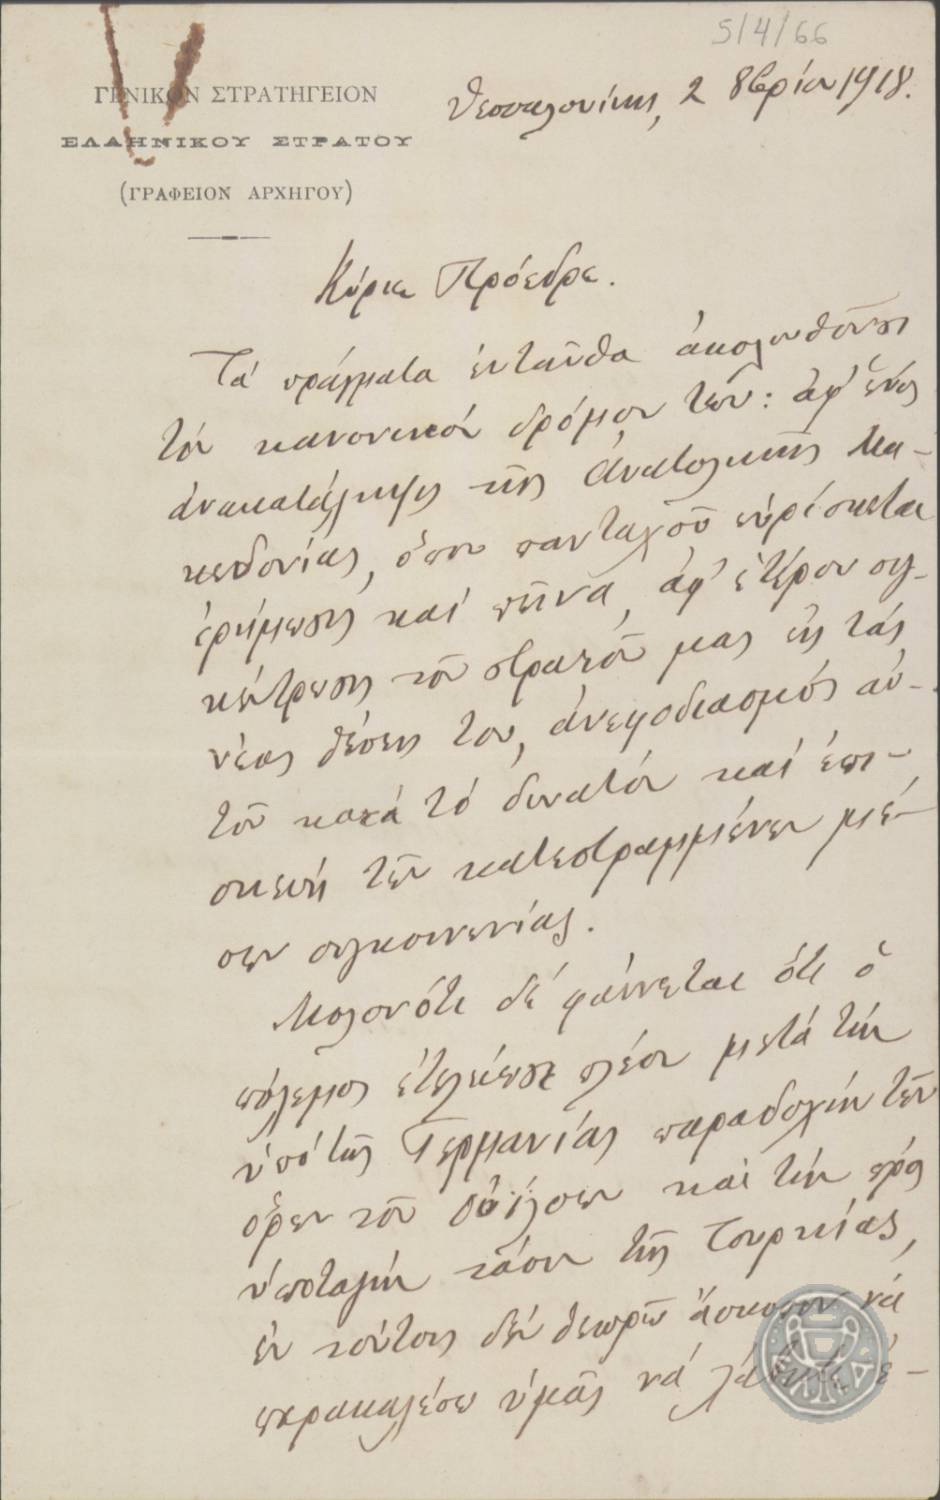 5/4/66
ΓΕΝΙΚΟΝ ΣΤΡΑΤΗΓΕΙΟΝ
ΕΛΛΗΝΙΚΟΥ ΣΤΡΑΤΟΥ
(ΓΡΑΦΕΙΟΝ ΑΡΧΗΓΟΥ)
Θεσσαλονίκη, 2 8βρίου 1918.
Κύριε Πρόεδρε.
Τά πράγματα ἐνταῦθα ἀκολουθοῦσι
τόν κανονικόν δρόμον των: ἀφ' ἑνός
ἀνακατάληψις τῆς Ἀνατολικῆς Μα-
κεδονίας, ὅπου πανταχοῦ εὑρίσκεται
ἐρήμωσις καί πεῖνα, ἀφ' ἑτέρου συγ-
κέντρωσις τοῦ στρατοῦ μας εἰς τάς
νέας θέσεις του, ἀνεφοδιασμός αὐ-
τοῦ κατά τό δυνατόν καί ἐπι-
σκευή τῶν κατεστραμμένων μέ-
σων συγκοινωνίας.
Μολονότι δέ φαίνεται ὅτι ὁ
πόλεμος ἐτελείωσε πλέον μετά τήν
ὑπό τῆς Γερμανίας παραδοχήν τῶν
ὅρων τοῦ Οὐίλσων καί τήν πρός
ὑποταγήν τάσιν τῆς Τουρκίας,
ἐν τούτοις δέν θεωρῶ ἄσκοπον νά
παρακαλέσω ὑμᾶς νά λάβητε ὑ-